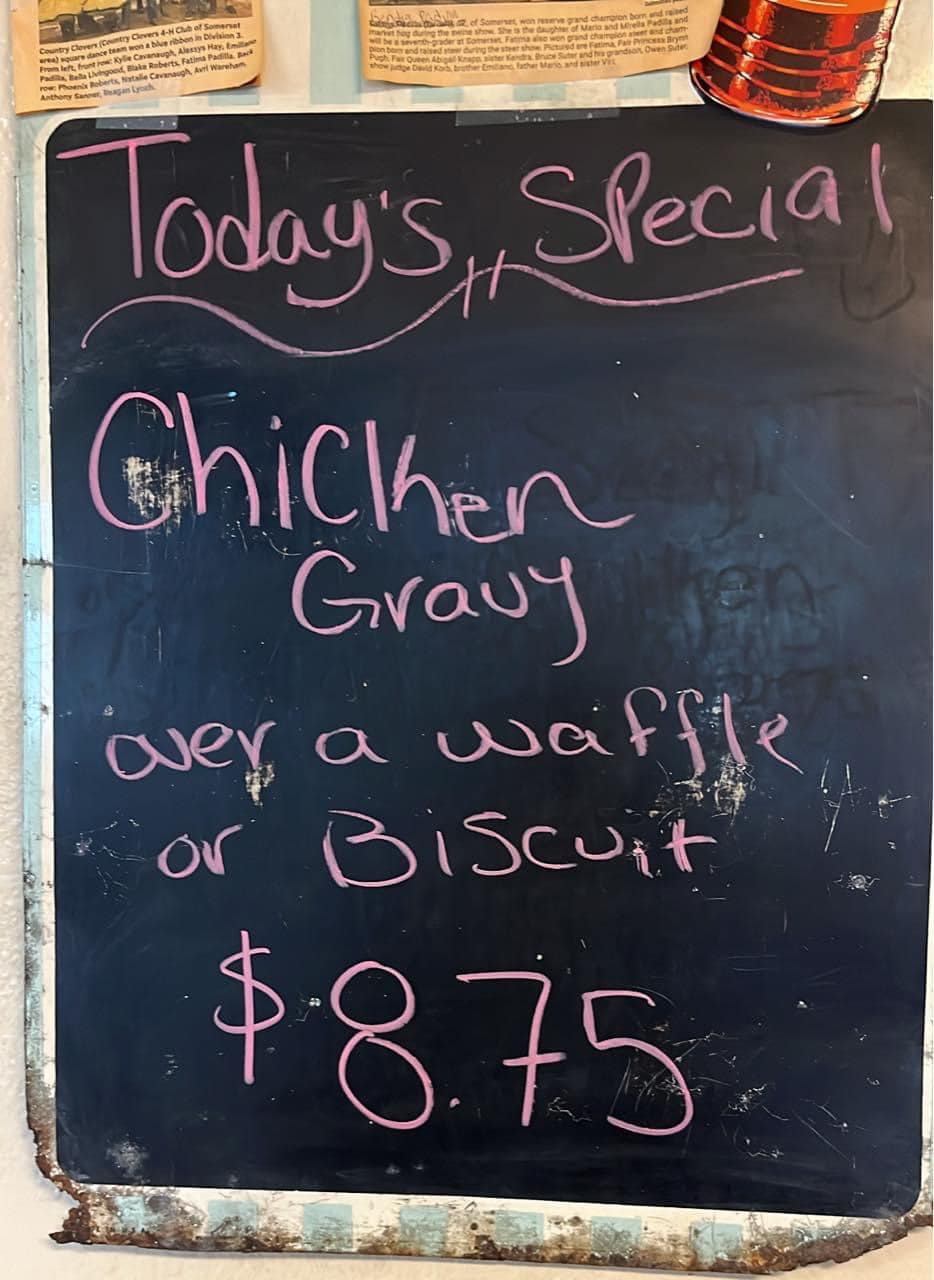 Country Clovers (Country Clovers 4-H Club of Somerset
area) square dance team won a blue ribbon in Division 3.
From left, front row: Kylie Cavanaugh, Alexsys Hay, Emiliano
Padilla, Bella Livingood, Blake Roberts, Fatima Padilla. Back
row: Phoenix Roberts, Natalie Cavanaugh, Avri Wareham,
Anthony Sanner, Reagan Lynch.
of Somerset, won reserve grand champion born and raised
market hog during the swine show. She is the daughter of Mario and Mirella Padilla and
will be a seventh-grader at Somerset. Fatima also won grand champion steer and cham-
pion born and raised steer during the steer show. Pictured are Fatima, Fair Princess Brynn
Pugh, Fair Queen Abigail Knapp, sister Kendra, Bruce Suter and his grandson, Owen Suter,
show judge David Korb, brother Emiliano, father Mario, and sister Viri.
Today's Special
Chicken
Gravy
over a waffle
or Biscuit
$8.75